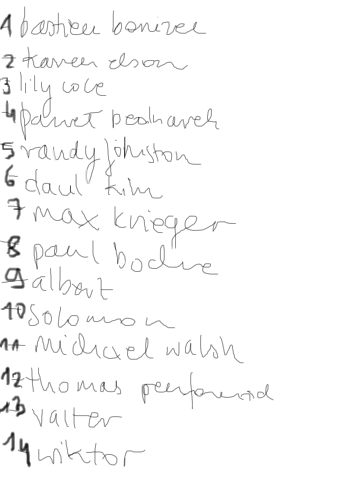 1 bastien bonizec
2 karen elson
3 lily cole
4 pawet bednarek
5 randy johnston
6 daul kim
7 max krieger
8 paul bodine
9 albert
10 solomon
11 michael walsh
12 thomas
13 valter
14 wiktor